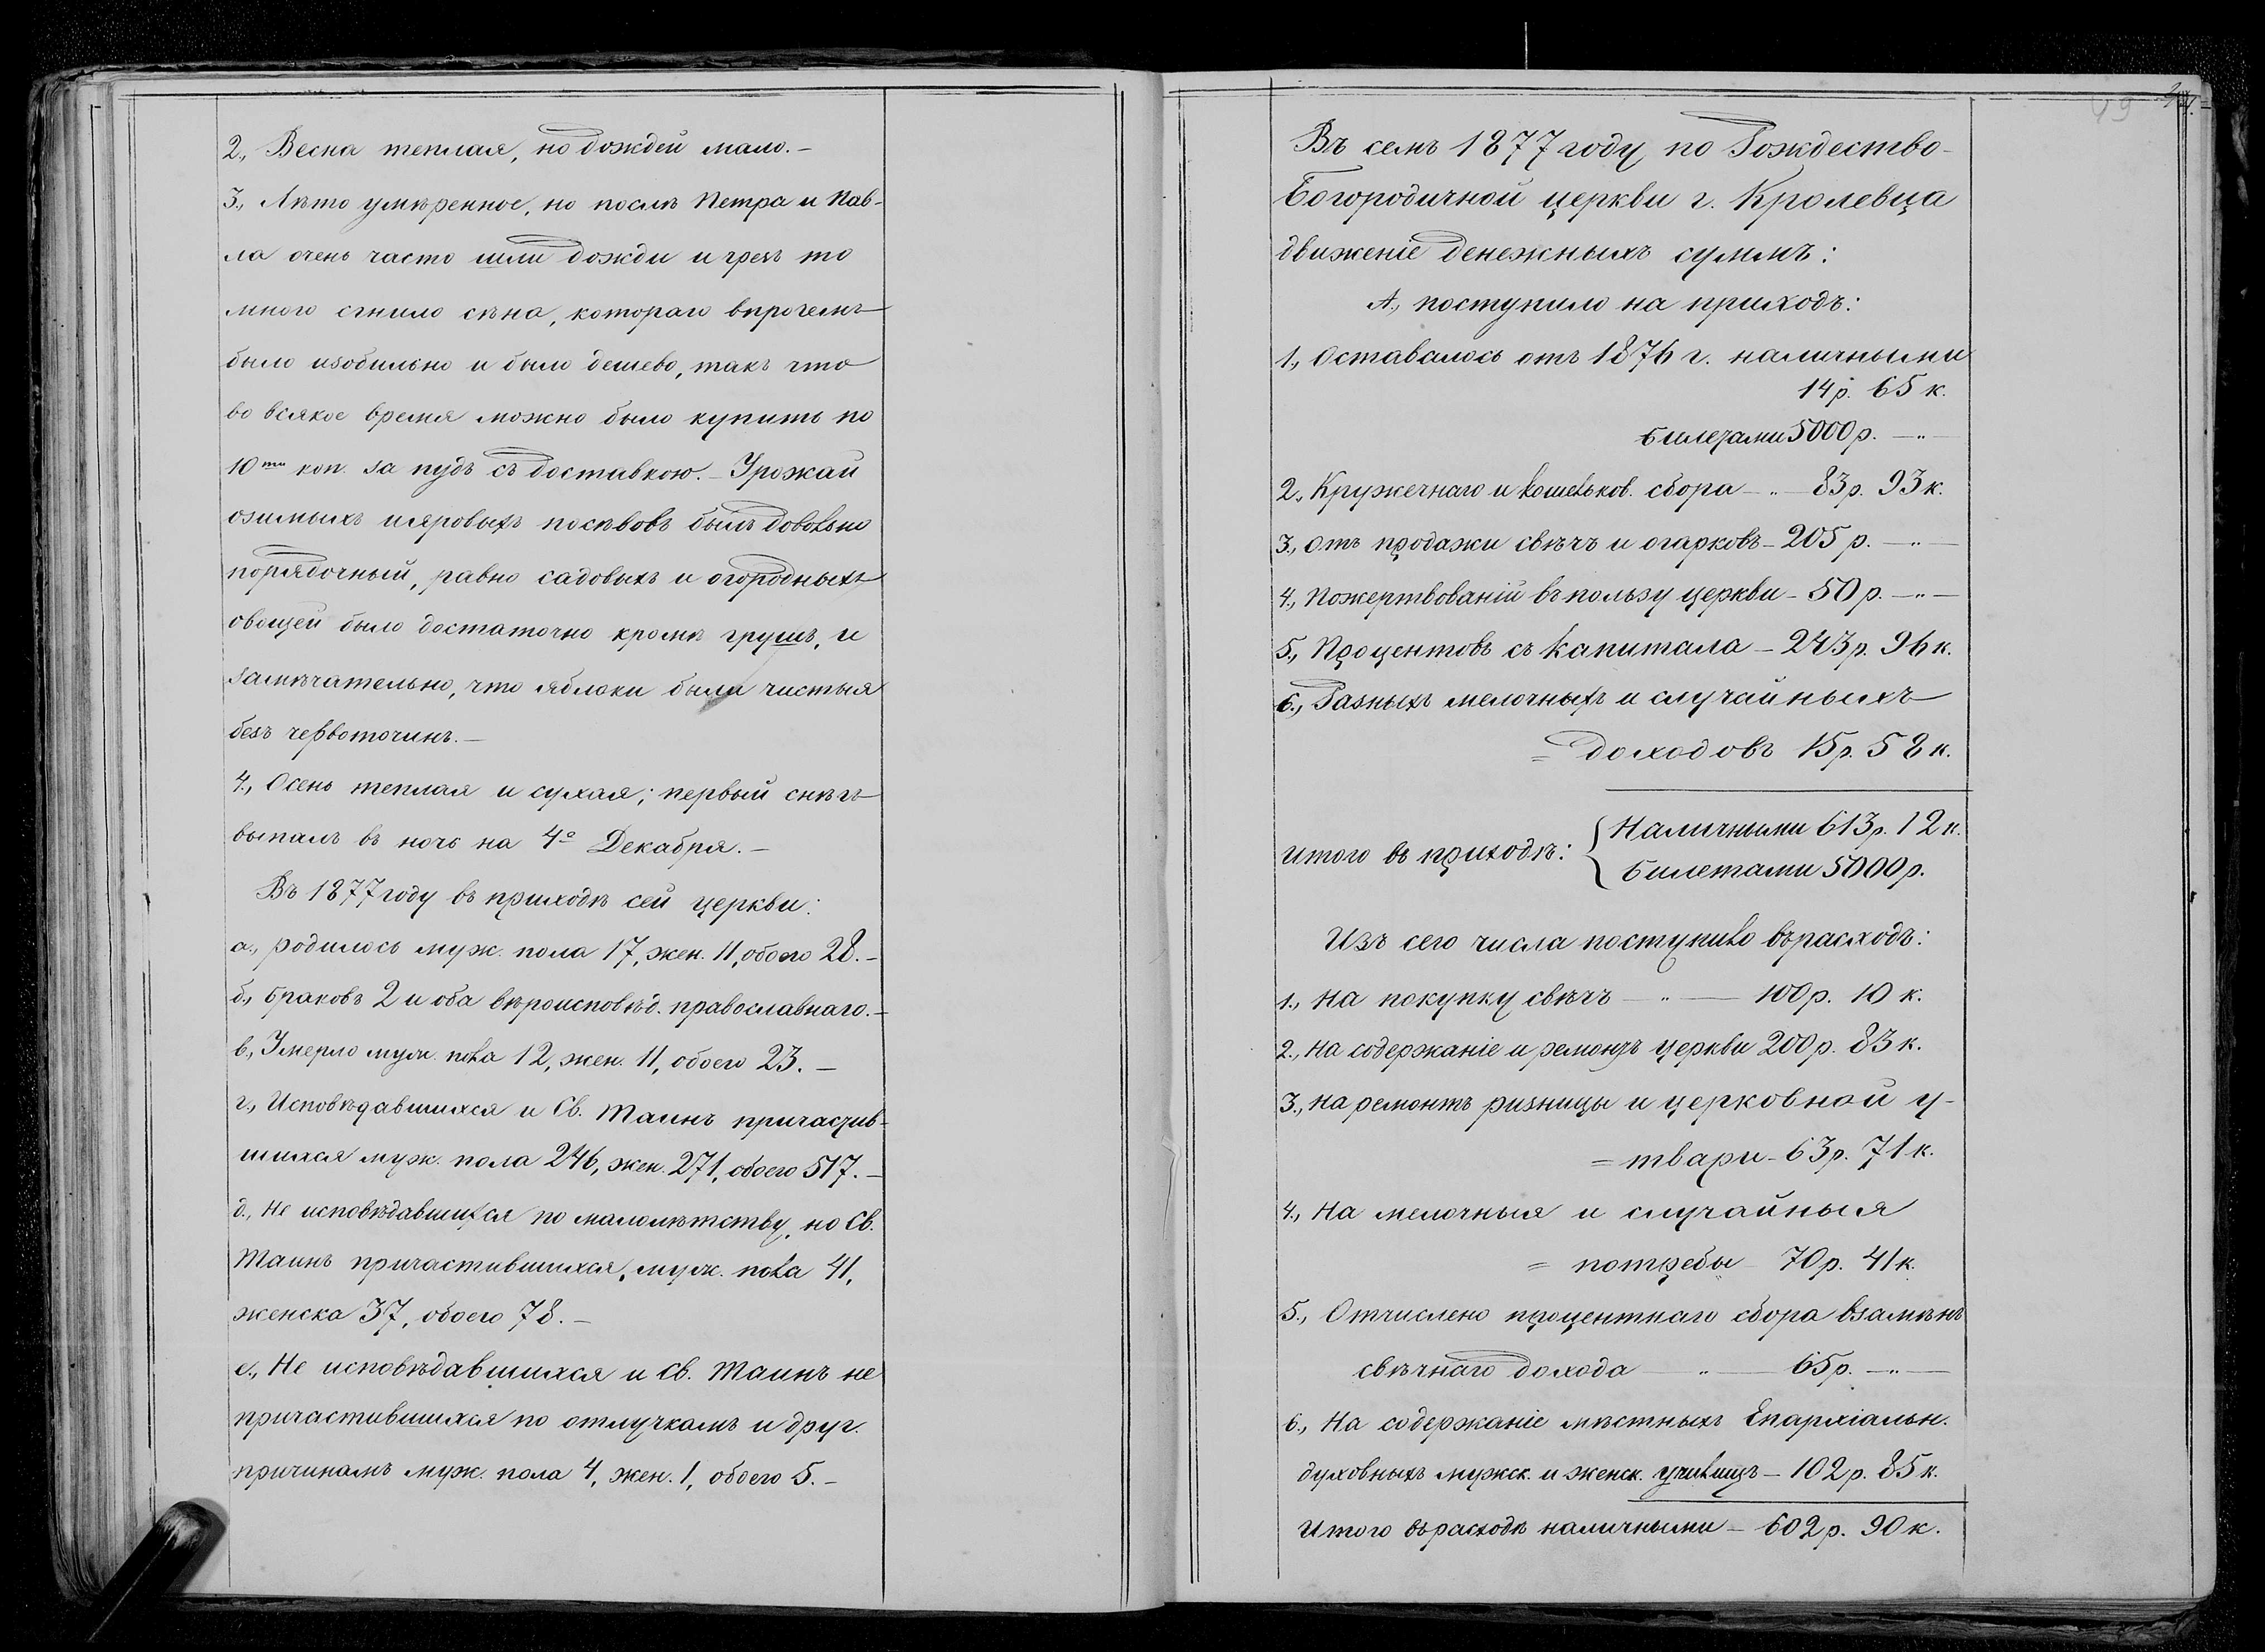 2., Весна теплая, но дождей мало.–
3., Лѣто умѣренное, но послѣ Петра и Пав-
ла очень часто шли дожди и чрезъ то
много сгнило сѣна, котораго впрочемъ
было изобильно и было дешево, такъ что
во всякое время можно было купить по
10ти коп. за пудъ съ доставкою.– Урожай
озимыхъ и яровыхъ посѣвовъ былъ довольно
порядочный, равно садовыхъ и огородныхъ
овощей было достаточно кромѣ грушъ, и
замѣчательно, что яблоки были чистыя
безъ червоточинъ.–
4., Осень теплая и сухая; первый снѣгъ
выпалъ въ ночь на 4е Декабря.–
Въ 1877 году въ приходѣ сей церкви:
а., родилось муж. пола 17, жен. 11, обоего 28.–
б., браковъ 2 и оба вѣроисповѣд. православнаго.–
в., Умерло муж. пола 12, жен. 11, обоего 23.–
г., Исповѣдавшихся и Св. Таинъ причастив-
шихся муж. пола 246, жен. 271, обоего 517.–
д., Не исповѣдавшихся по малолѣтству, но Св.
Таинъ причастившихся, муж. пола 41,
женска 37, обоего 78.–
е., Не исповѣдавшихся и Св. Таинъ не
причастившихся по отлучкамъ и друг.
причинамъ муж. пола 4, жен. 1, обоего 5.–
49
Въ семъ 1877 году, по Рождество-
Богородичной церкви г. Кролевца
движеніе денежныхъ суммъ:
А., поступило на приходъ:
1., Оставалось отъ 1876 г. наличными
14 р. 65 к.
билетами 5000 р. –„–
2., Кружечнаго и кошельков. сбора –„– 83 р. 93 к.
3., отъ продажи свѣчъ и огарковъ – 205 р. –„–
4., Пожертвованій въ пользу церкви – 50 р. –„–
5., Процентовъ съ капитала – 243 р. 96 к.
6., Разныхъ мелочныхъ и случайныхъ
= доходовъ 15 р. 58 к.
Итого въ приходѣ: { Наличными 613 р. 12 к.
Билетами 5000 р.
Изъ сего числа поступило въ расходъ:
1., На покупку свѣчъ –„– 100 р. 10 к.
2., На содержаніе и ремонтъ церкви 200 р. 83 к.
3., На ремонтъ ризницы и церковной у-
= твари – 63 р. 71 к.
4., На мелочныя и случайныя
= потребы – 70 р. 41 к.
5., Отчислено процентнаго сбора взамѣнъ
свѣчнаго дохода –„– 65 р. –„–
6., На содержаніе мѣстныхъ Епархіальн.
духовныхъ мужск. и женск. училищъ – 102 р. 85 к.
Итого въ расходѣ наличными – 602 р. 90 к.